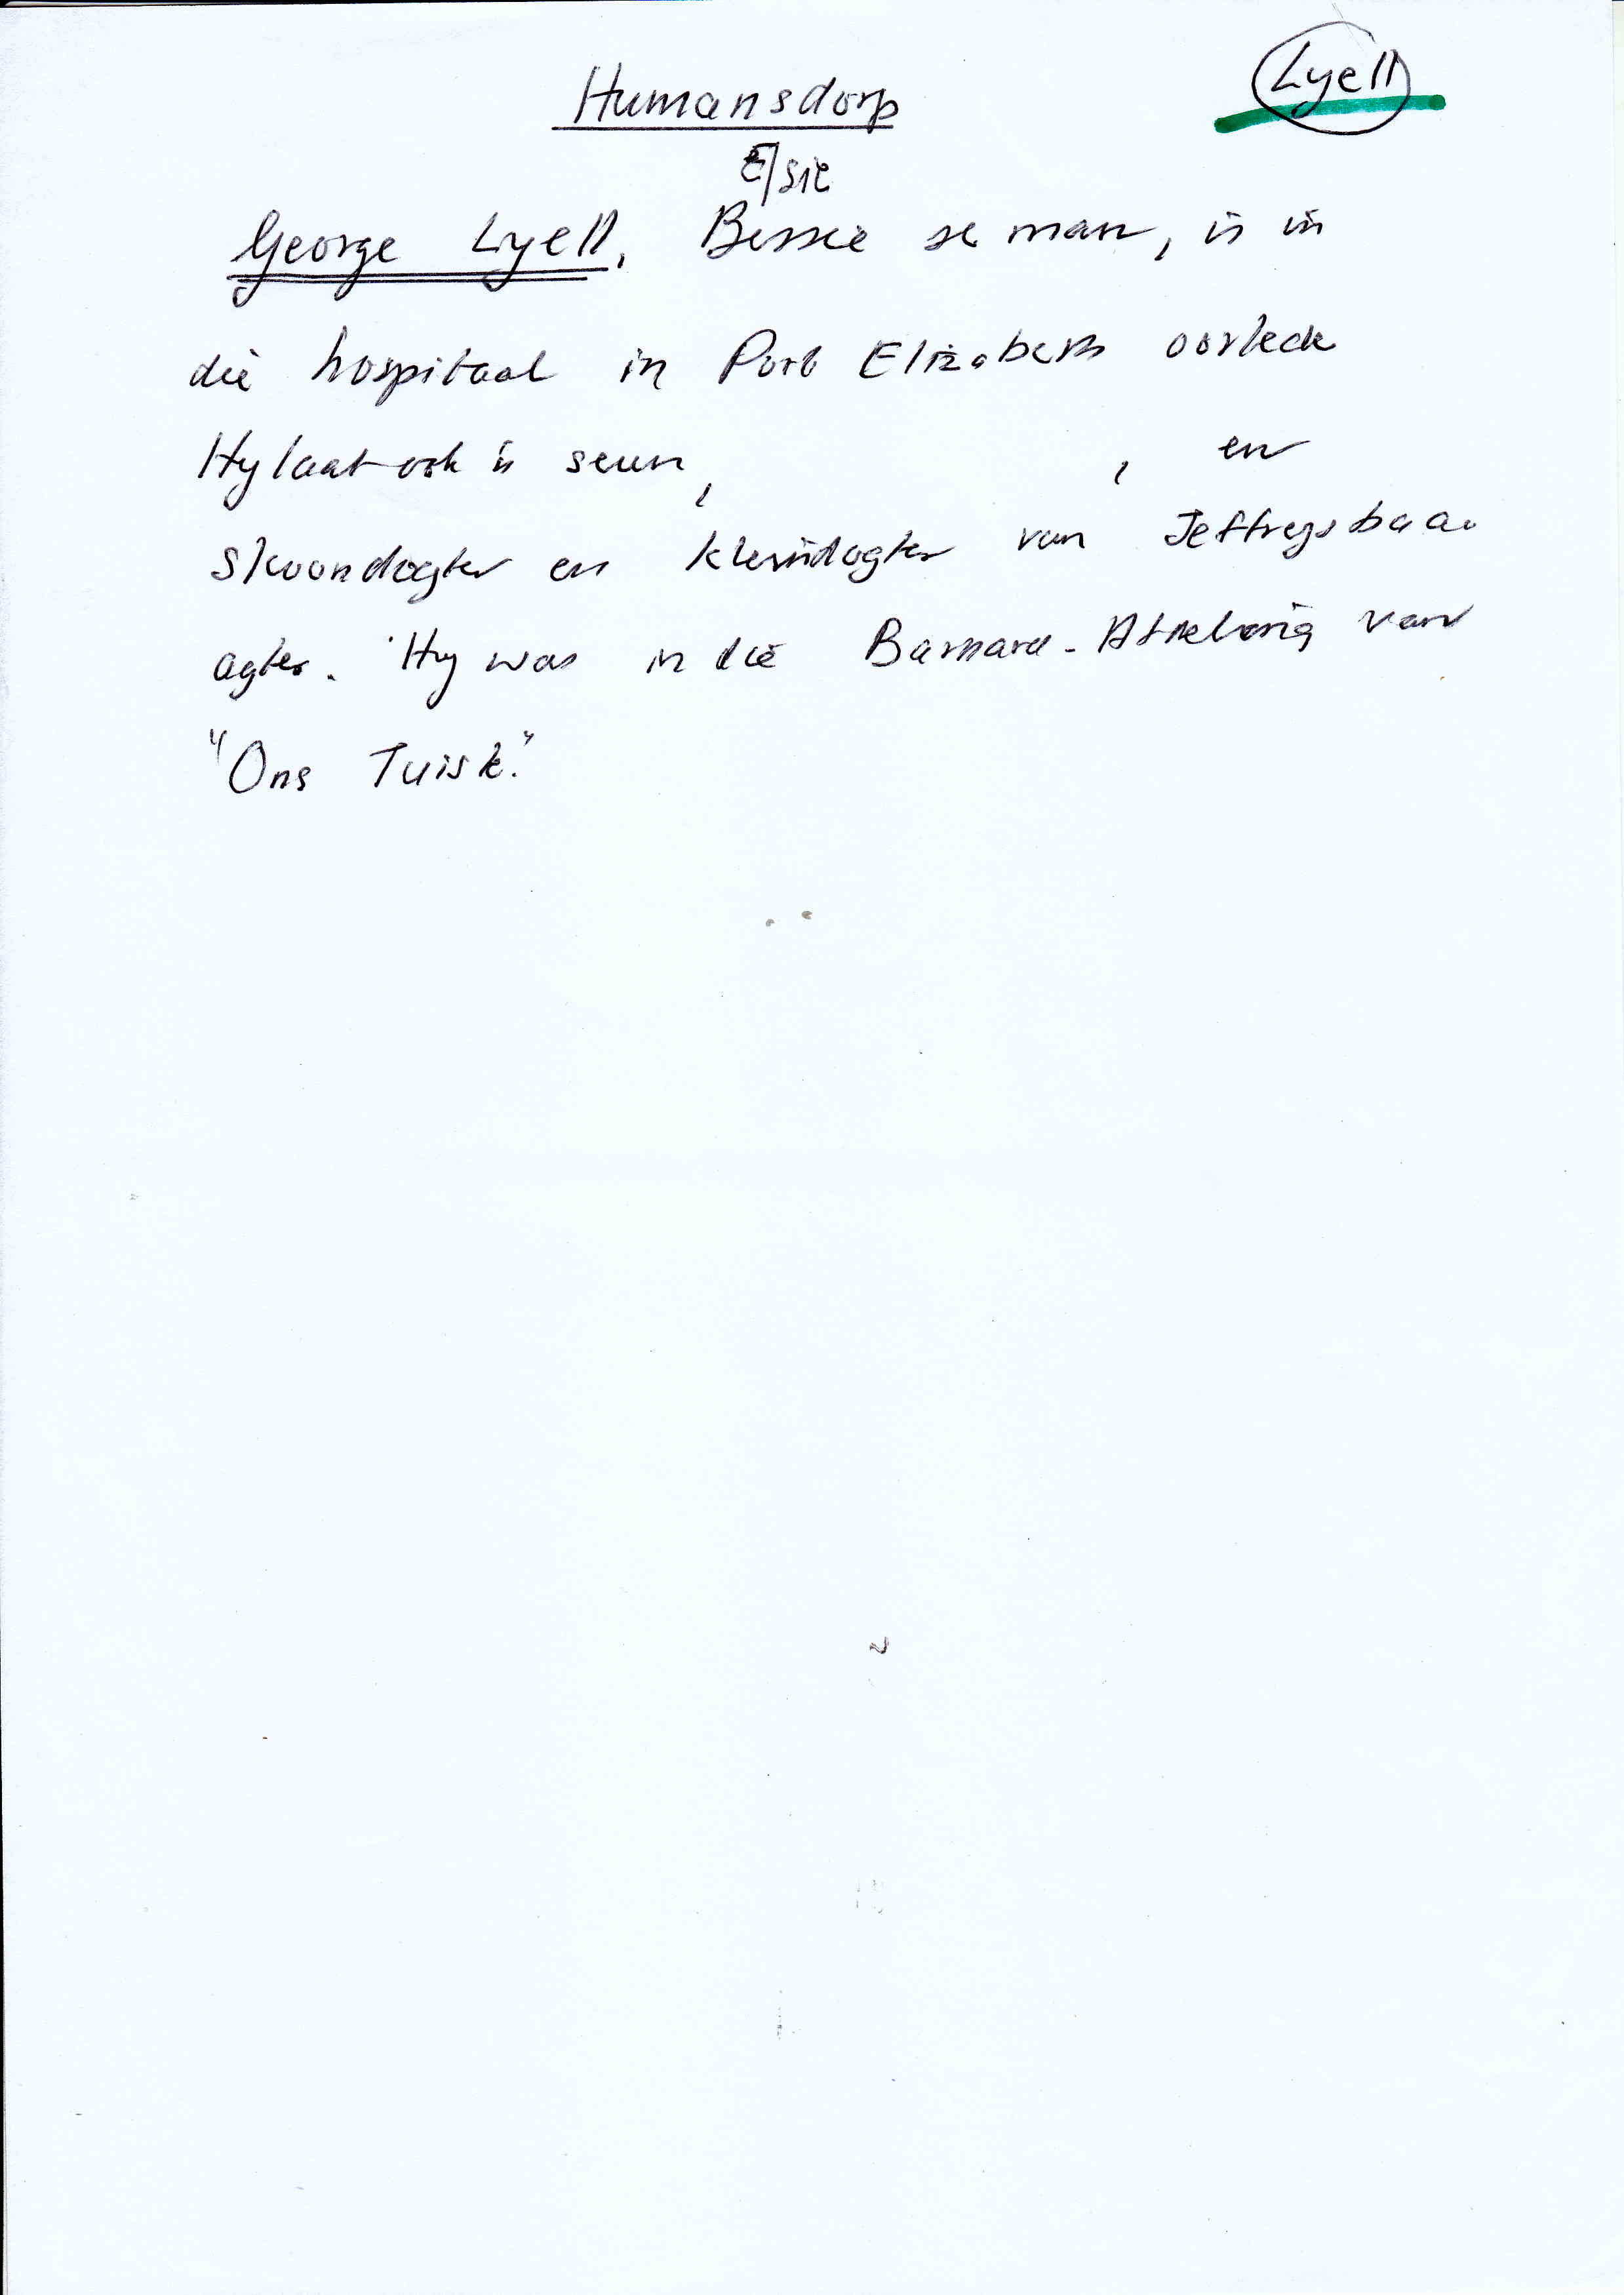 Lyell
Humansdorp
Elsie
George Lyell, Bessie se man, is in
die hospitaal in Port Elizabeth oorlede
Hy laat ook 'n seun, , en
skoondogter en kleindogter van Jeffreysbaai
agter. Hy was in die Barnard-Afdeling van
"Ons Tuiste."